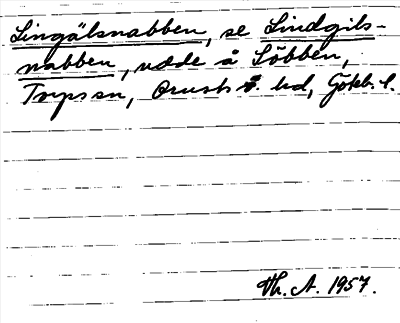 Lingälsnabben, se Lindgils-
nabben, udde å Löbben,
Orust v. hd, Götebl.
Th. A. 1957.